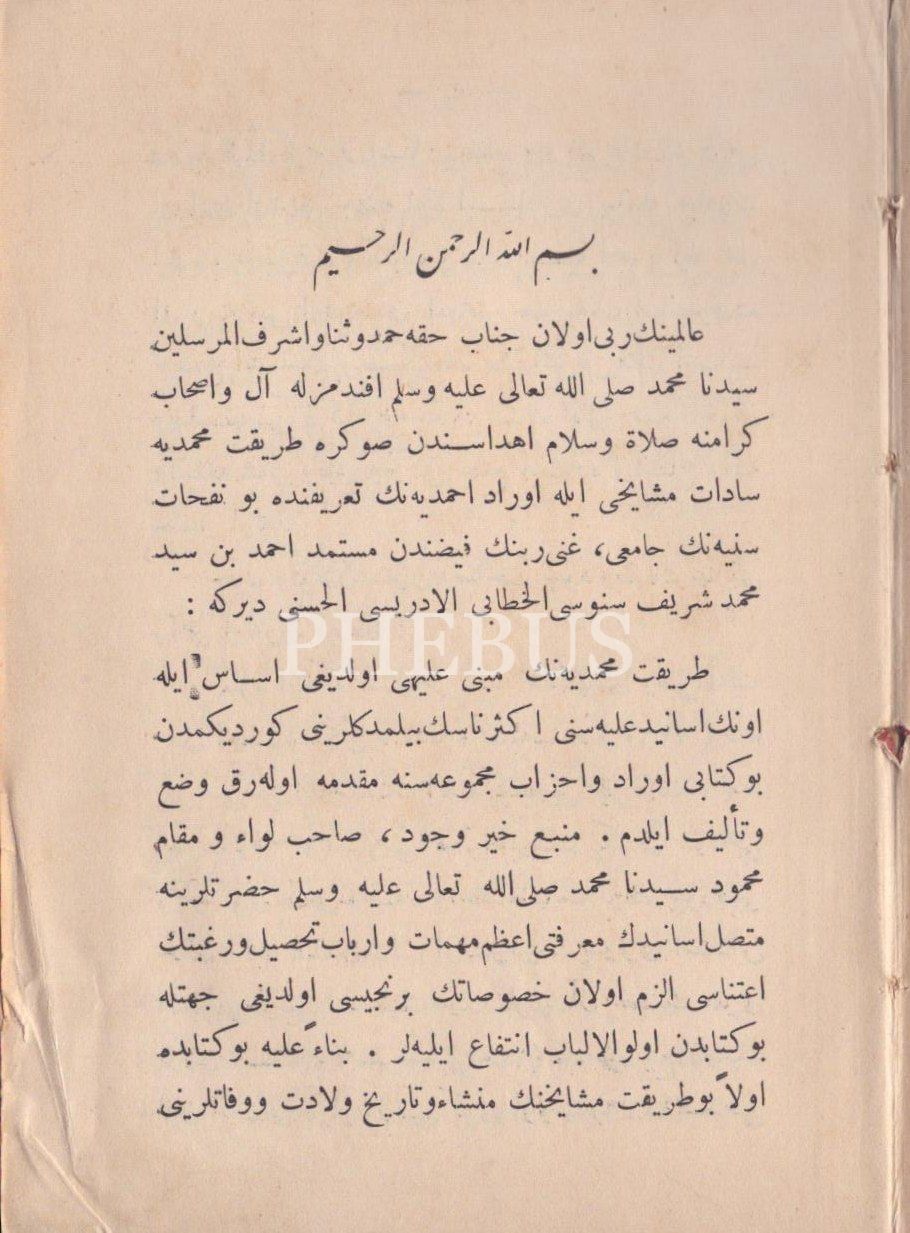 بسم الله الرحمن الرحيم
عالمينك ربى اولان جناب حقه حمد وثنا واشرف المرسلين
سيدنا محمد صلى الله تعالى عليه وسلم افندمزله آل واصحاب
كرامنه صلاة وسلام اهداسندن صوكره طريقت محمديه
سادات مشايخى ايله اوراد احمديه‌نك تعريفنده بو نفحات
سنيه‌نك جامعى، غنى ربنك فيضندن مستمد احمد بن سيد
محمد شريف سنوسى الخطابى الادريسى الحسنى ديركه :
PHEBUS
طريقت محمديه‌نك مبنى عليهى اولديغى اساس ايله
اونك اسانيد عليه‌سنى اكثر ناسك بيلمدكلرينى كورديكمدن
بو كتابى اوراد واحزاب مجموعه‌سنه مقدمه اوله‌رق وضع
وتأليف ايلدم . منبع خير وجود ، صاحب لواء و مقام
محمود سيدنا محمد صلى الله تعالى عليه وسلم حضرتلرينه
متصل اسانيدك معرفتى اعظم مهمات وارباب تحصيل ورغبتك
اعتناسى الزم اولان خصوصاتك برنجيسى اولديغى جهتله
بو كتابدن اولو الالباب انتفاع ايليه‌لر . بناءً عليه بو كتابده
اولاً بو طريقت مشايخنك منشاء وتاريخ ولادت ووفاتلرينى